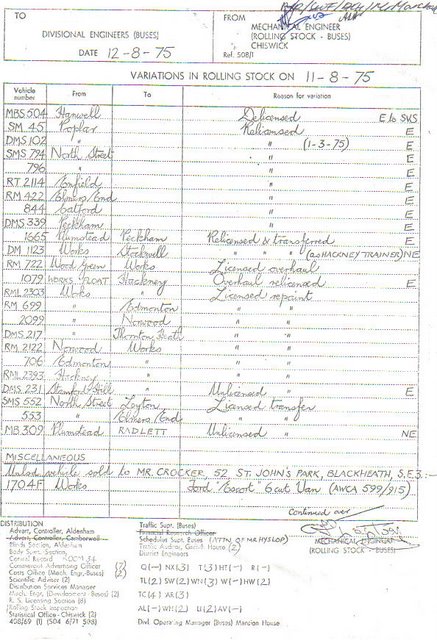 TO
DIVISIONAL ENGINEERS (BUSES)
DATE 12-8-75
FROM
MECHANICAL ENGINEER
(ROLLING STOCK - BUSES)
CHISWICK
Ref. 508/T
VARIATIONS IN ROLLING STOCK ON 11-8-75
Vehicle number From To Reason for variation
MBS 504 Hanwell Delicensed E to SVS
SM 45 Poplar Relicensed E
DMS 102 " " (1-3-75) E
SMS 794 North Street " E
796 " " E
RT 2114 Enfield " E
RM 422 Elmers End " E
844 Catford " E
DMS 339 Peckham " E
1665 Plumstead Peckham Relicensed & transferred E
DM 1123 Works Stockwell " " " (as HACKNEY TRAINER) NE
RM 722 Wood Green Works Licensed overhaul
1079 WORKS FLOAT Hackney Overhaul relicensed E
RML 2303 Works " Licensed repaint
RM 699 " Edmonton " "
2099 " Norwood " "
DMS 217 " Thornton Heath " "
RM 2122 Norwood Works " "
706 Edmonton " " "
RML 2393 Hackney " " "
DMS 231 Stamford Hill " Unlicensed " E
SMS 552 North Street Leyton Licensed transfer
553 " Elmers End " "
MB 309 Plumstead RADLETT Unlicensed " NE
MISCELLANEOUS
vehicle sold to MR. CROCKER, 52 ST. JOHN'S PARK, BLACKHEATH, S.E.3. —
1704F Works Ford "Escort" 6 cwt Van (AWCA 599/915)
Continued over
DISTRIBUTION
Advert. Controller, Aldenham
Advert. Controller, Camberwell
Body Supt. Section,
Commercial Advertising Officer (2)
Costs Office (Mech. Engr. Buses) (2)
Scientific Adviser (2)
Distribution Services Manager
Mech. Engr. (Development - Buses) (2)
R. S. Licensing Section (6)
Rolling Stock Inspection
Statistical Office - Chiswick (2)
408/69 (1) (504 6/71 593)
Traffic Supt. (Buses)
Financial Research Officer
Schedules Supt. Buses (ATTN. OF MR HYSLOP)
District Engineers
TL(2) SW(2) WN(3) W(-) HW(2)
AL(-) WH(2) U(2) AV(-)
Divl. Operating Manager (Buses) Mansion House
MECHANICAL ENGINEER
(ROLLING STOCK - BUSES)